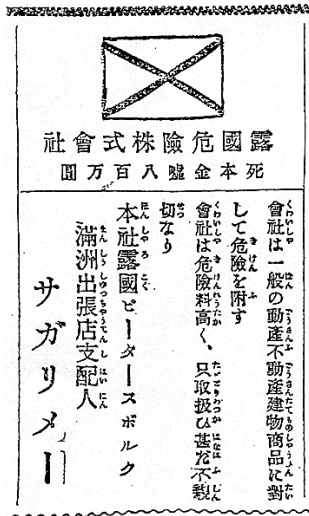 露國危險株式會社
死本金噓八百万圓
會社は一般の動產不動產建物商品に對
して危險を附す
會社は危險料高く、只取扱ひ甚だ不親
切なり
本社露國ピータースボルク
滿洲出張店支配人
サガリメー